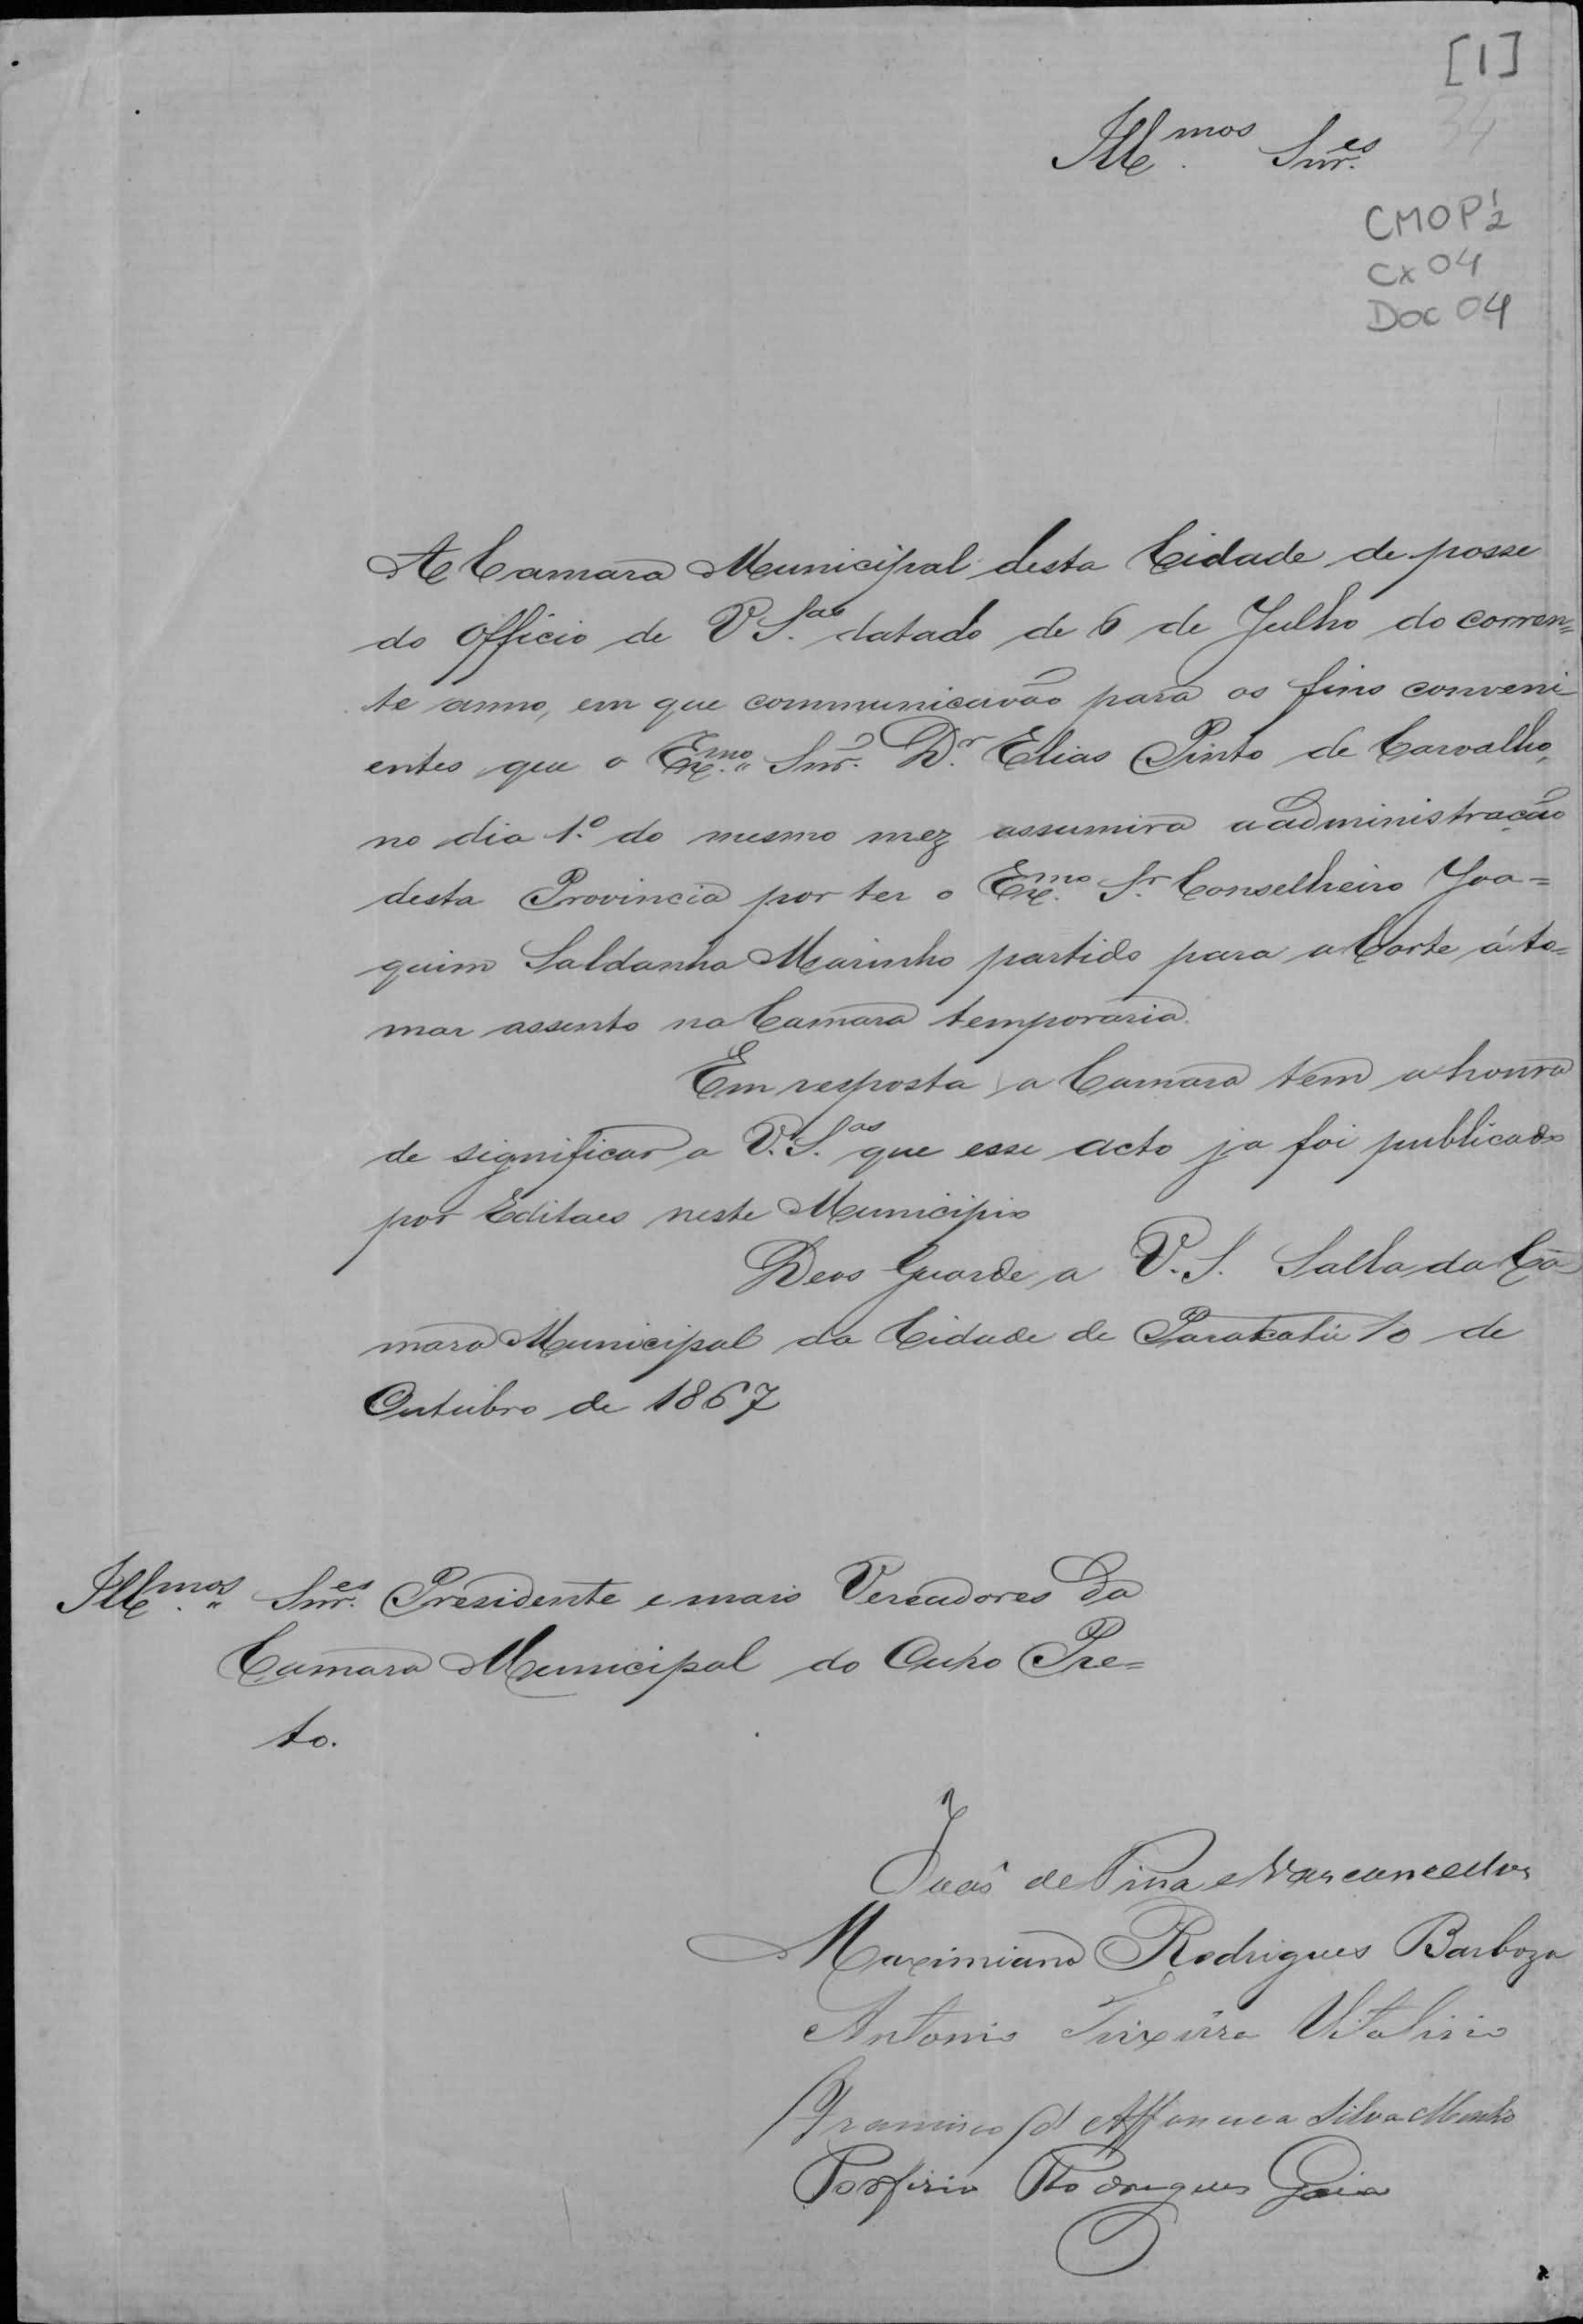 [1]
34
Ill.mos Snr.es
CMOP 1/2
Cx 04
Doc 04
A Camara Municipal desta Cidade de posse
do Officio de V S.as datado de 6 de Julho do corren=
te anno, em que communicavão para os fins conveni
entes que o Ex.mo Snr. D.r Elias Pinto de Carvalho,
no dia 1.º do mesmo mez assumira a administração
desta Provincia por ter o Ex.mo S.r Conselheiro Joa=
quim Saldanha Marinho partido para a Corte á to=
mar assento na Camara temporaria.
Em resposta a Camara tem a honra
de significar a V.S.as que esse acto ja foi publicado
por Editaes neste Municipio
Deos Guarde a V.S. Salla da Ca
mara Municipal da Cidade de Parakatú 10 de
Outubro de 1867
Ill.mos Snr.es Presidente e mais Vereadores da
Camara Municipal do Ouro Pre=
to.
João de Pina e Vasconcellos
Maximiano Rodrigues Barboza
Antonio Teixeira
Francisco d Affonceca Silva
Porfirio Rodrigues Gaia